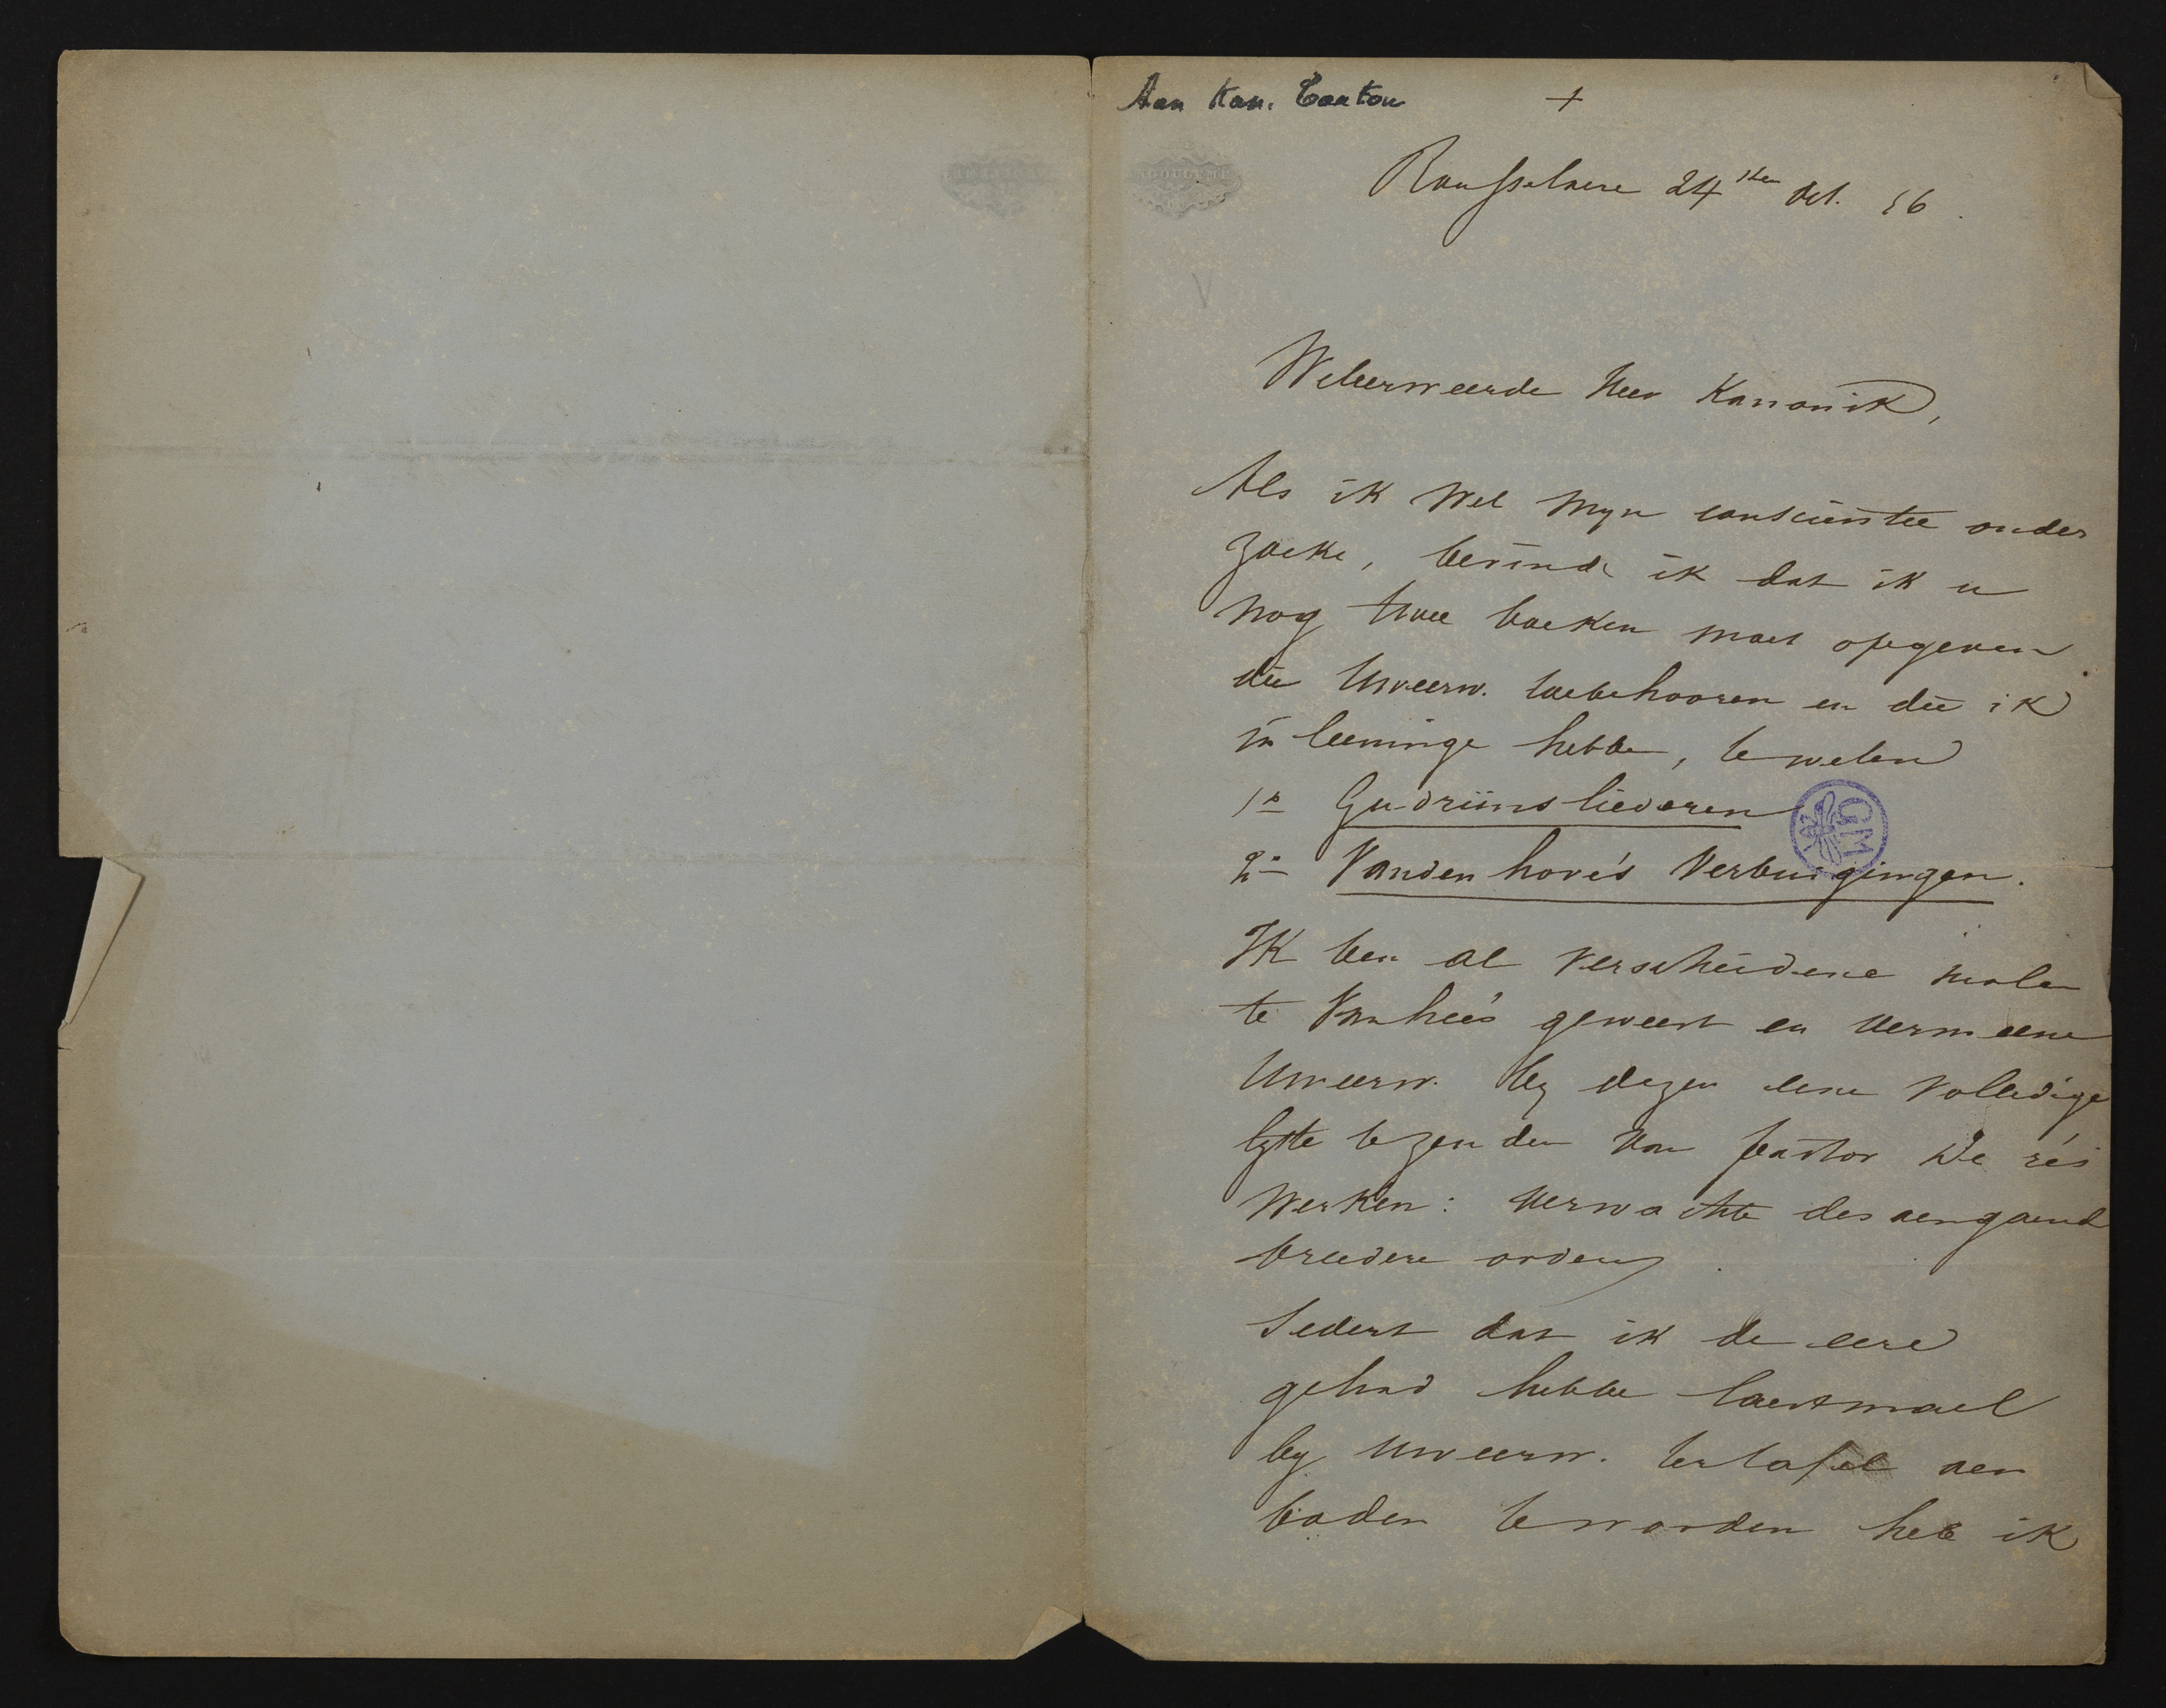 Aan Kan. Carton
+
Rousselaere 24sten Oct. 56.
Weleerweerde Heer Kanonik,
Als ik wel myn conscientie onder
zoeke, bevinde ik dat ik u
nog twee boeken moet opgeven
die Uweerw. toebehooren en die ik
in leeninge hebbe, te weten
1° Gudrunsliederen
2° Vandenhove's Verbuigingen.
Ik ben al verscheidene malen
te Vanhee's geweest en vermeene
Uweerw. by dezen eene volledige
lyste te zenden van pastor De rés
werken: verwachte desaengaende
breedere orders.
Sedert dat ik de eere
gehad hebbe laestmael
by Uweerw. ter tafel aen
boden te worden heb ik
ANGOULEME
GM